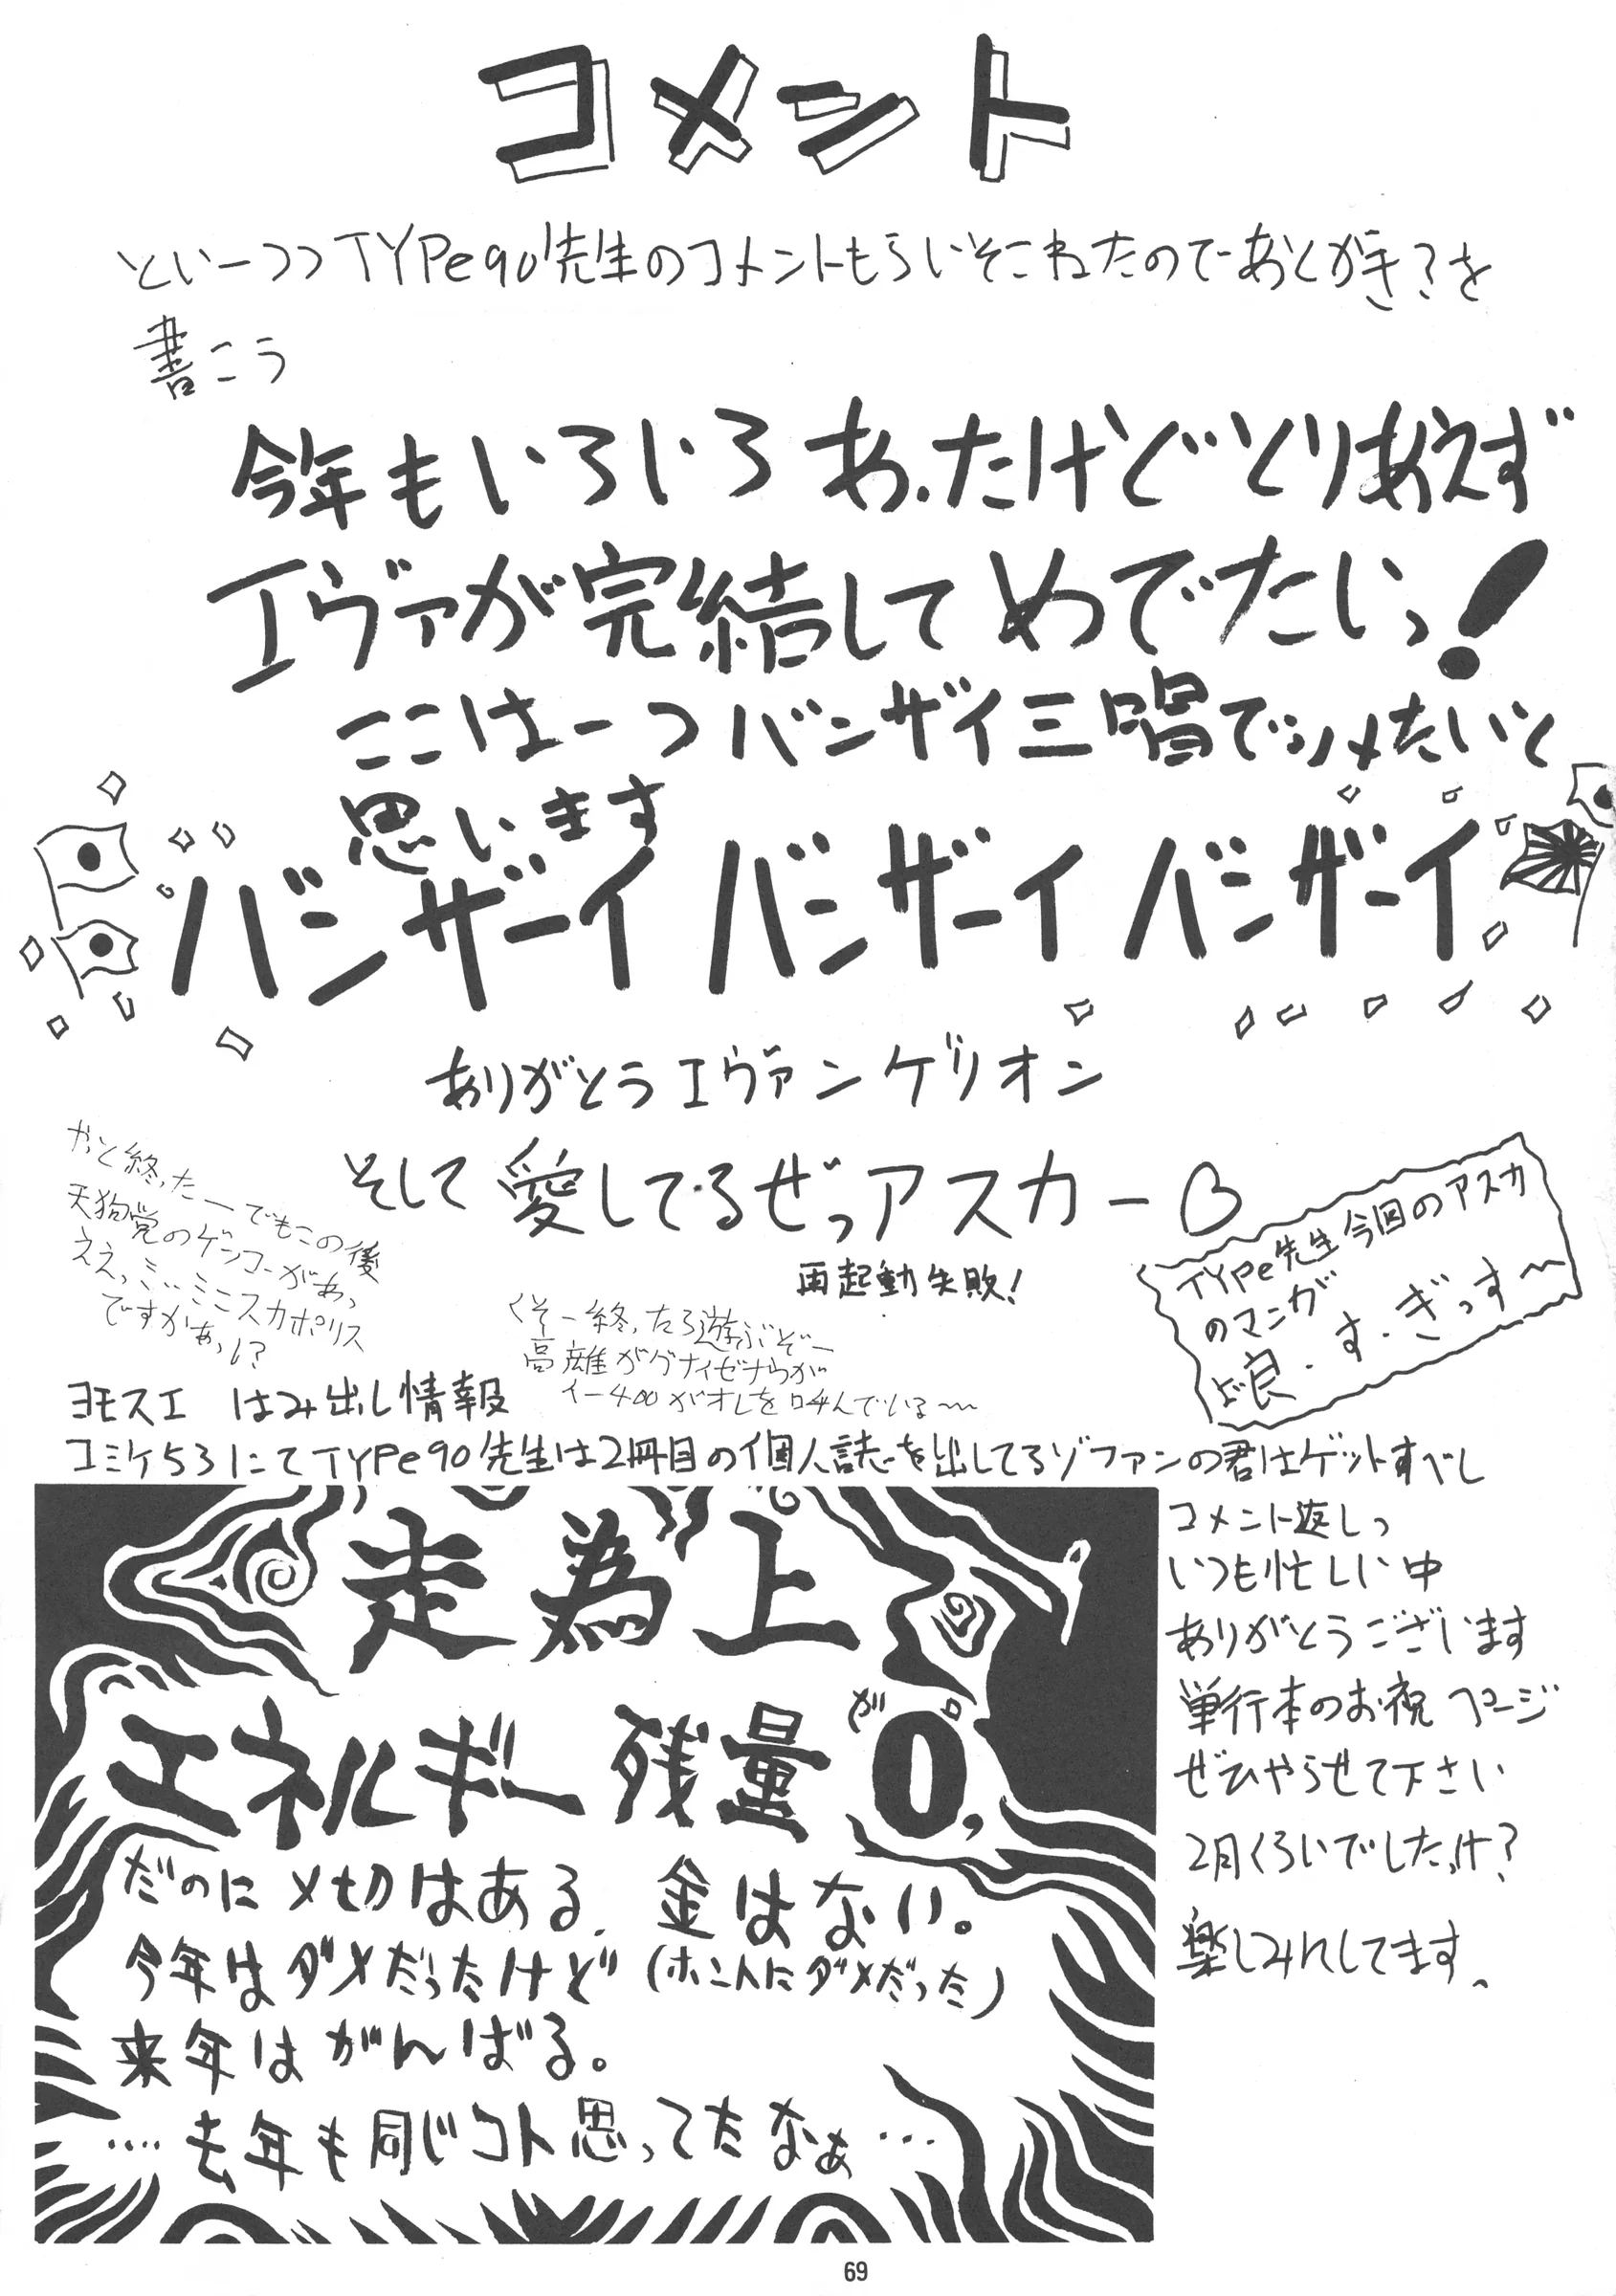 コメント
といーつつTYPe90'先生のコメントもらいそこねたのであとがき?を
書こう
今年もいろいろあったけどとりあえず
エヴァが完結してめでたいっ!
ここは一つバンザイ三唱でシメたいと
思います
バンザーイ バンザーイ バンザーイ
ありがとうエヴァンゲリオン
そして愛してるぜっアスカー
再起動失敗!
やっと終ったーでもこの後
天狗党のゲンコーがあっ
ええっミ…ミニスカポリス
ですかぁっ!?
くそー終ったら遊ぶぞー
高雄がグナイゼナウが
イー400がオレを呼んでいる〜〜
TYPe先生今回のアスカ
のマンガ
良すぎっす〜
ヨモスエ はみ出し情報
コミケ53にてTYPe90'先生は2冊目の個人誌を出してるゾファンの君はゲットすべし
走為上
エネルギー残量が0。
だのに〆切はある。金はない。
今年はダメだったけど(ホントにダメだった)
来年はがんばる。
…‥去年も同じコト思ってたなぁ…
コメント返しっ
いつも忙しい中
ありがとうございます
単行本のお祝ページ
ぜひやらせて下さい
2月くらいでしたっけ?
楽しみにしてます。
69